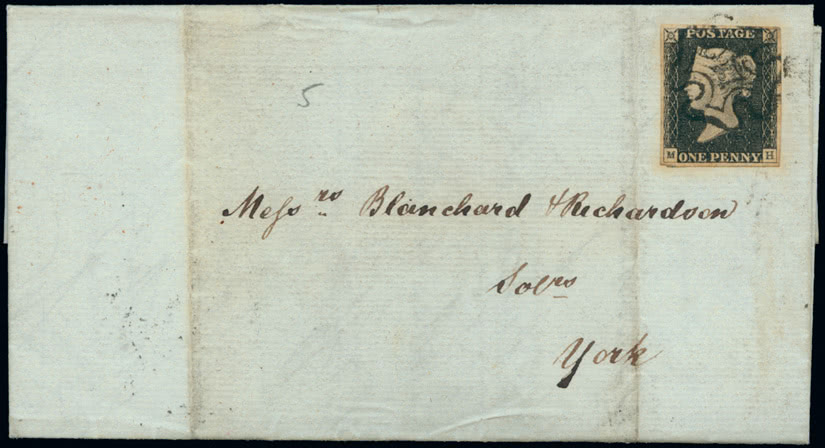 POSTAGE
M ONE PENNY H
5
Messrs Blanchard & Richardson
Solrs
York